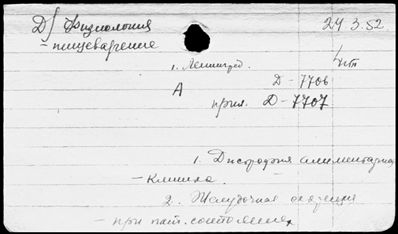 Д/ Физиология 24 3.52
- пищеварение
1. Ленинград.
А Д-7706
прил. Д-7707
1. Дистрофия алиментарная
- клиника.
2. Желудочная секреция
- при пат. состояниях